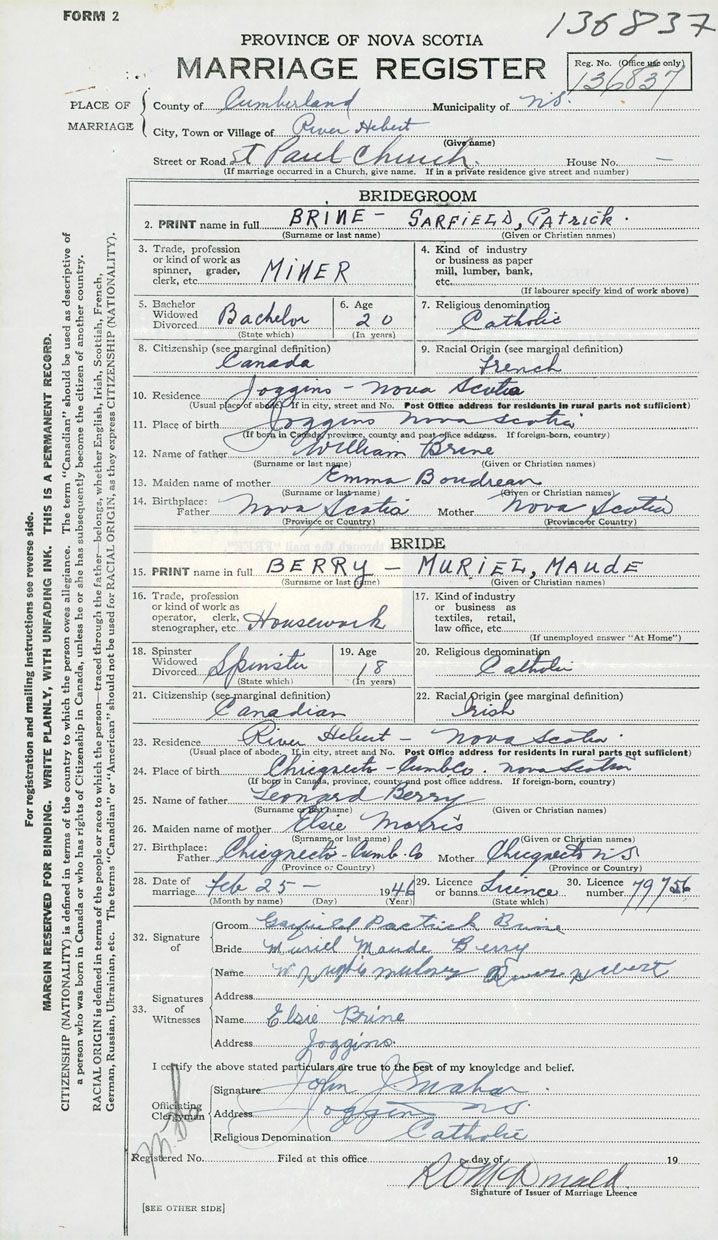 FORM 2
136837
PROVINCE OF NOVA SCOTIA
MARRIAGE REGISTER
Reg. No. (Office use only)
136837
PLACE OF MARRIAGE
County of Cumberland Municipality of N.S.
City, Town or Village of River Hebert
(Give name)
Street or Road St Paul Church. House No. —
(If marriage occurred in a Church, give name. If in a private residence give street and number)
BRIDEGROOM
2. PRINT name in full BRINE - GARFIELD, PATRICK.
(Surname or last name) (Given or Christian names)
3. Trade, profession or kind of work as spinner, grader, clerk, etc. MINER
4. Kind of industry or business as paper mill, lumber, bank, etc.
(If labourer specify kind of work above)
5. Bachelor Widowed Divorced Bachelor
(State which)
6. Age 20
(In years)
7. Religious denomination Catholic
8. Citizenship (see marginal definition) Canada
9. Racial Origin (see marginal definition) French
10. Residence Joggins - Nova Scotia
(Usual place of abode. If in city, street and No. Post Office address for residents in rural parts not sufficient)
11. Place of birth Joggins Nova Scotia
(If born in Canada, province, county and post office address. If foreign-born, country)
12. Name of father William Brine
(Surname or last name) (Given or Christian names)
13. Maiden name of mother Emma Boudreau
(Surname or last name) (Given or Christian names)
14. Birthplace: Father Nova Scotia Mother Nova Scotia
(Province or Country) (Province or Country)
BRIDE
15. PRINT name in full BERRY - MURIEL, MAUDE
(Surname or last name) (Given or Christian names)
16. Trade, profession or kind of work as operator, clerk, stenographer, etc. Housework
17. Kind of industry or business as textiles, retail, law office, etc.
(If unemployed answer "At Home")
18. Spinster Widowed Divorced Spinster
(State which)
19. Age 18
(In years)
20. Religious denomination Catholic
21. Citizenship (see marginal definition) Canadian
22. Racial Origin (see marginal definition) Irish
23. Residence River Hebert - Nova Scotia.
(Usual place of abode. If in city, street and No. Post Office address for residents in rural parts not sufficient)
24. Place of birth Chicgnecto - Cumb Co. Nova Scotia
(If born in Canada, province, county and post office address. If foreign-born, country)
25. Name of father Leonard Berry
(Surname or last name) (Given or Christian names)
26. Maiden name of mother Elsie Morris
(Surname or last name) (Given or Christian names)
27. Birthplace: Father Chicgnecto - Cumb. Co Mother Chicgnecto N S
(Province or Country) (Province or Country)
28. Date of marriage Feb 25 - 1946
(Month by name) (Day) (Year)
29. Licence or banns Licence
(State which)
30. Licence number 79756
32. Signature of
Groom Garfield Pactrick Brine
Bride Muriel Maude Berry
33. Signatures of Witnesses
Name W River Hebert
Address
Name Elsie Brine
Address Joggins.
I certify the above stated particulars are true to the best of my knowledge and belief.
Officiating Clergyman
Signature John J.
Address Joggins N.S.
Religious Denomination Catholic
Registered No. Filed at this office day of 19
R O McDonald
Signature of Issuer of Marriage Licence
[SEE OTHER SIDE]
For registration and mailing instructions see reverse side.
MARGIN RESERVED FOR BINDING. WRITE PLAINLY, WITH UNFADING INK. THIS IS A PERMANENT RECORD.
CITIZENSHIP (NATIONALITY) is defined in terms of the country to which the person owes allegiance. The term "Canadian" should be used as descriptive of
a person who was born in Canada or who has rights of Citizenship in Canada, unless he or she has subsequently become the citizen of another country.
RACIAL ORIGIN is defined in terms of the people or race to which the person—traced through the father—belongs, whether English, Irish, Scottish, French,
German, Russian, Ukrainian, etc. The terms "Canadian" or "American" should not be used for RACIAL ORIGIN, as they express CITIZENSHIP (NATIONALITY).